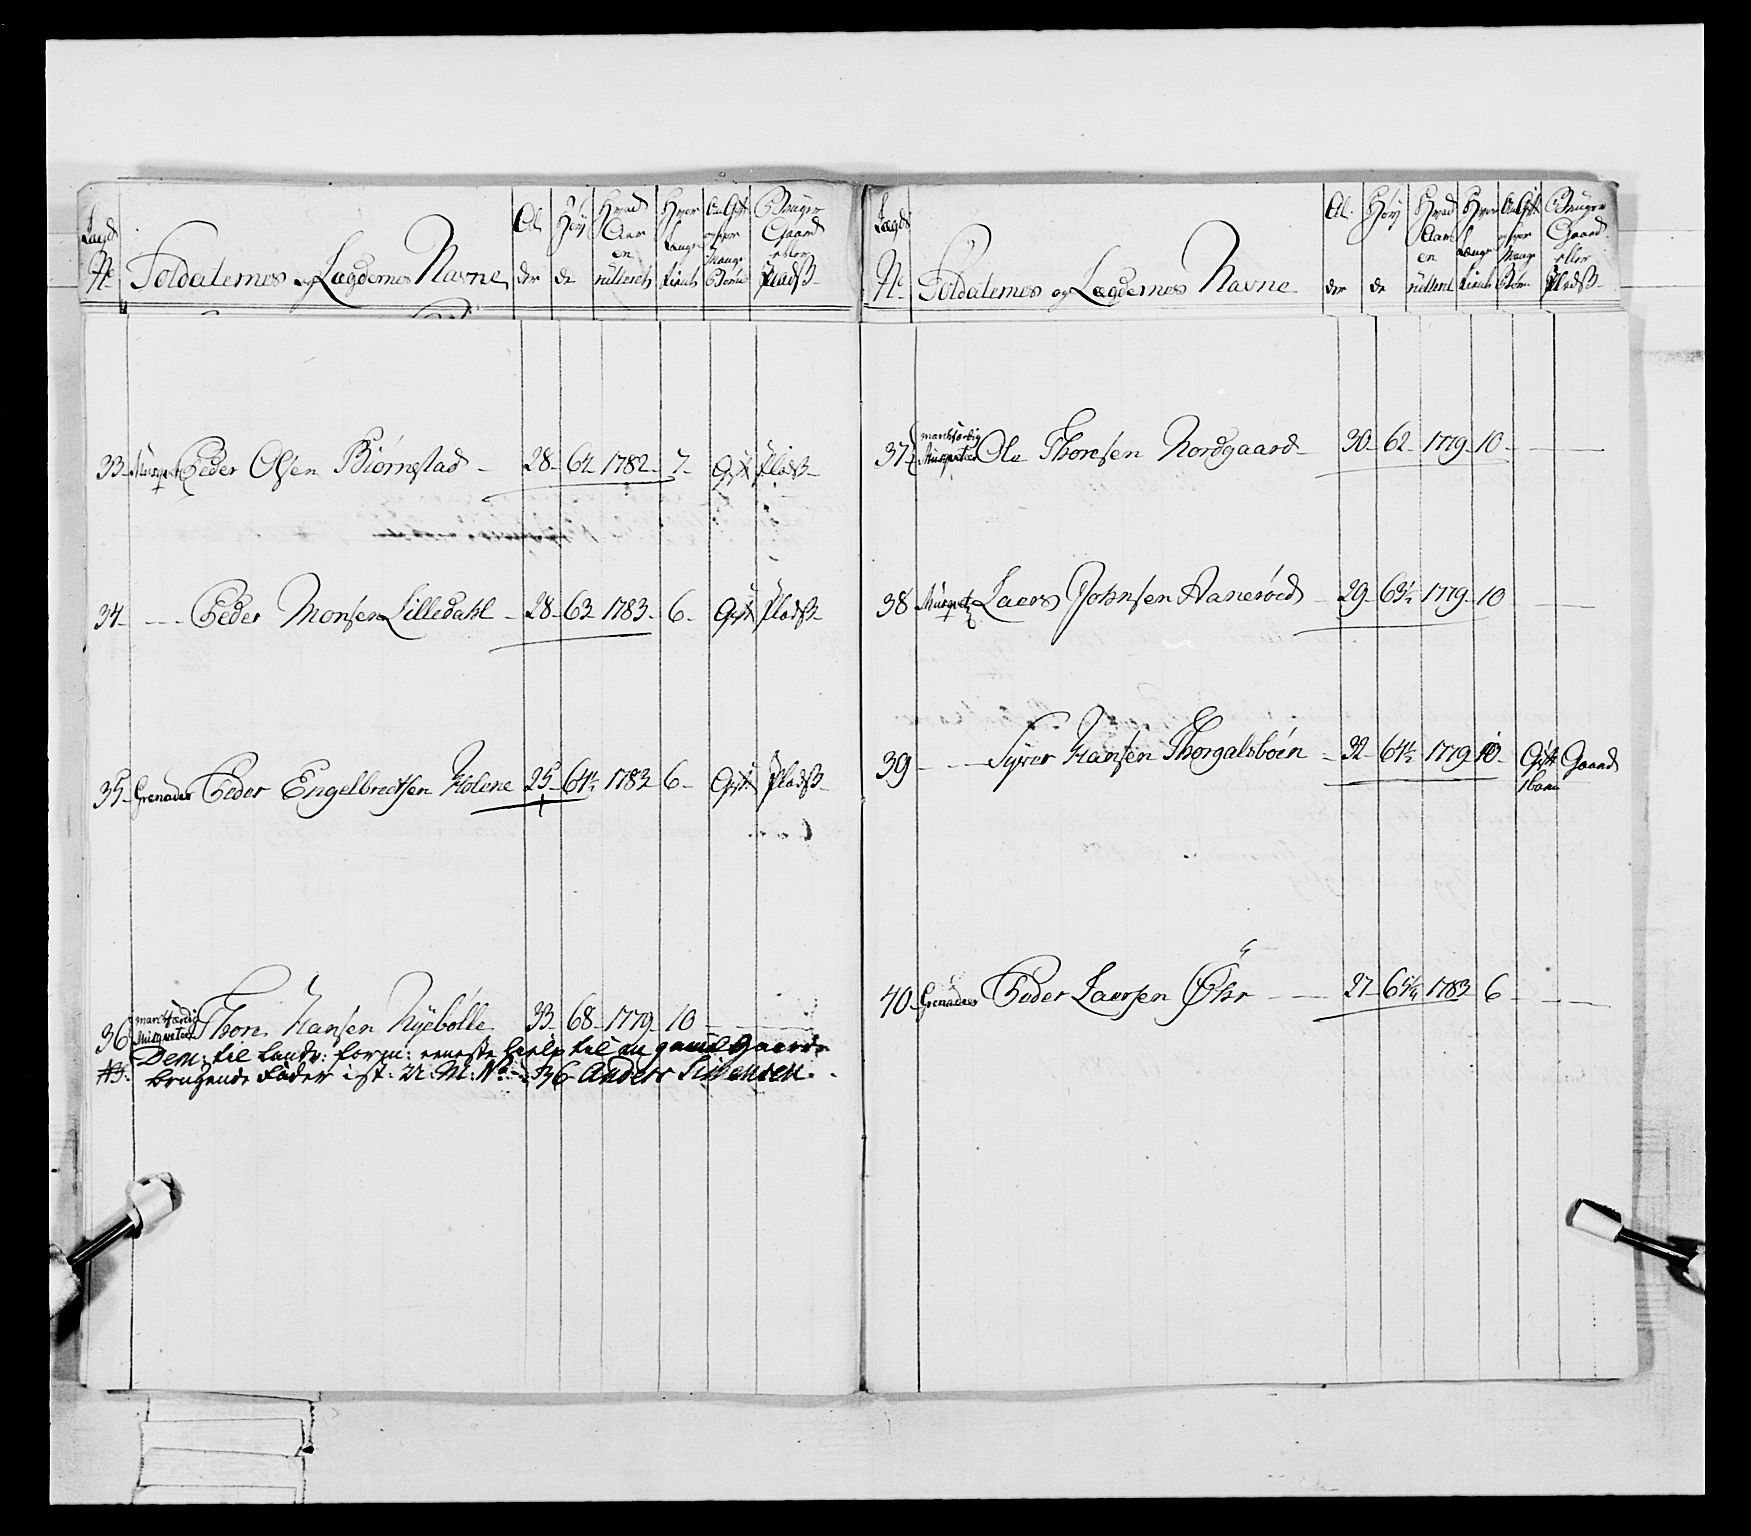 Lægds No | Soldaternes og Lægdernes Navne | Alder | Høyde | Hvad Aar en rulleret | Hvor Længe tient | Om Gift og hvor Mange Børn | Bruger Gaard eller Pladß
33 Musqvet Peder Olsen Biørnstad 28 64 1782 7 Gift Pladß
34 Peder Monsen Lilledahl 28 63 1783 6 Gift Pladß
35 Grenader Peder Engelbretsen Holene 25 64½ 1783 6 Gift Pladß
36 marchfærdig Musqveteer Thore Hansen Nyebølle 33 68 1779 10
Dem: til Landv: form: eeneste hielp til en gamel Gaard-
brugende Fader i st: U: M: No 36 Anders Siversen
Lægds No | Soldaternes og Lægdernes Navne | Alder | Høyde | Hvad Aar en rulleret | Hvor Længe tient | Om Gift og hvor Mange Børn | Bruger Gaard eller Pladß
37 marchfærdig Musqveteer Ole Thoresen Nordgaard 30 62 1779 10
38 Musqvet Laers Johnsen Aanerøed 29 63½ 1779 10
39 Syver Hansen Thorgalsbøen 32 64½ 1779 10 Gift Gaard
1 barn
40 Grenadeer Peder Laersen Øhr 27 65¼ 1783 6